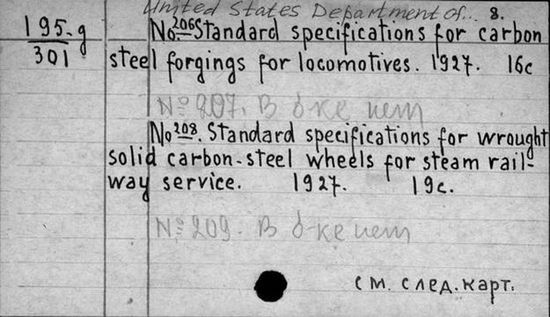 United States Department of... 8.
195-g
301
No 206. Standard specifications for carbon
steel forgings for locomotives. 1927. 16c
№ 207. В б-ке нет
No 208. Standard specifications for wrought
solid carbon-steel wheels for steam rail-
way service. 1927. 19c.
№ 209. В б-ке нет
см. след. карт.